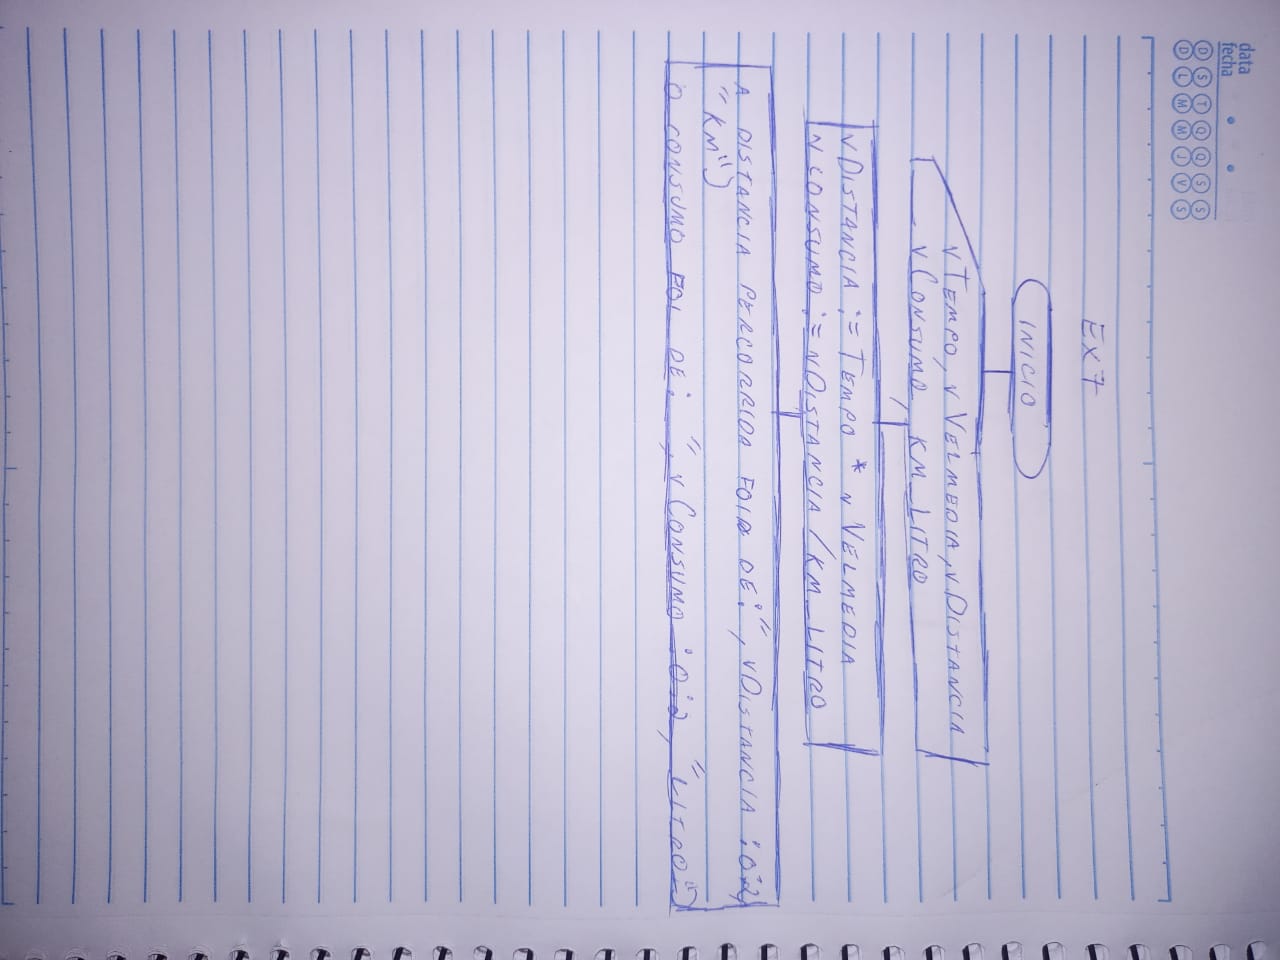 data
fecha
D S T Q Q S S
D L M M J V S
EX 7
INICIO
vTEMPO, vVELMEDIA, vDISTANCIA
, vCONSUMO, KM_LITRO
vDISTANCIA := TEMPO * vVELMEDIA
vCONSUMO := vDISTANCIA / KM_LITRO
A DISTANCIA PERCORRIDA FOI DE: ", vDISTANCIA :0:2,
" KM")
O CONSUMO FOI DE: ", vCONSUMO :0:2, " LITRO")